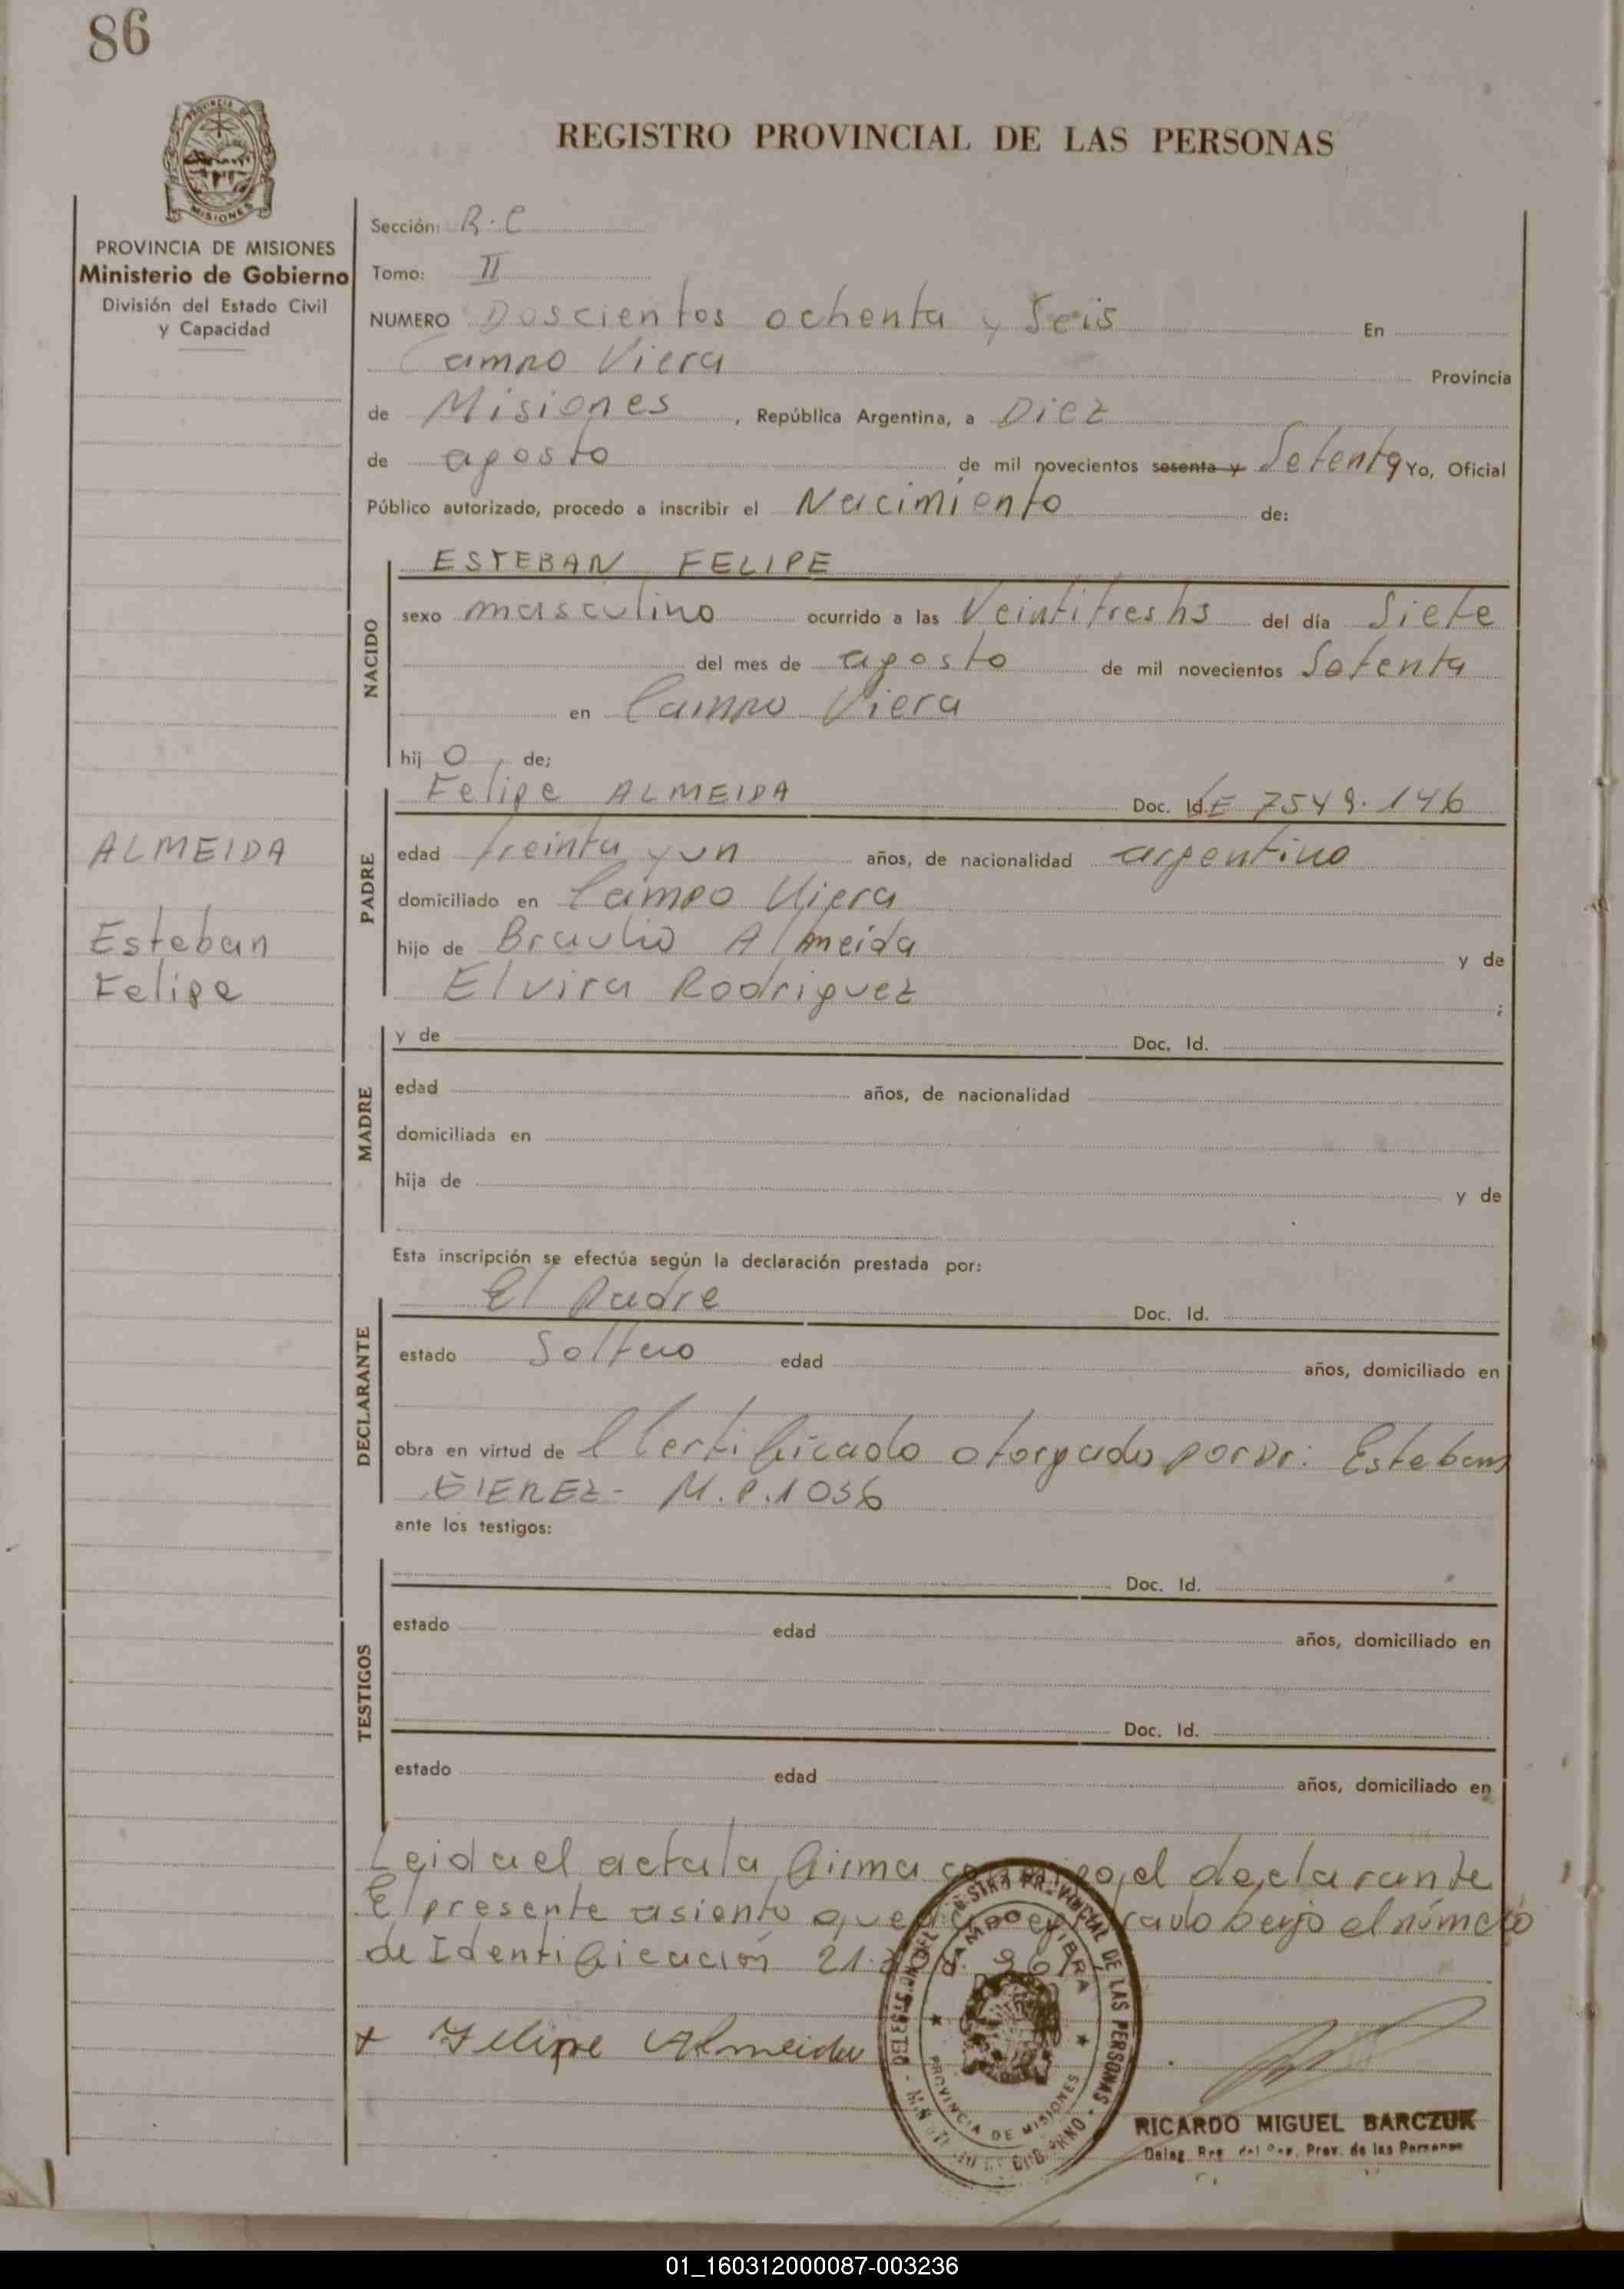 86
PROVINCIA DE
MISIONES
REGISTRO PROVINCIAL DE LAS PERSONAS
PROVINCIA DE MISIONES
Ministerio de Gobierno
División del Estado Civil
y Capacidad
Sección: R.C
Tomo: II
NUMERO Doscientos ochenta y Seis En
Campo Viera Provincia
de Misiones, República Argentina, a Diez
de agosto de mil novecientos sesenta y Setenta Yo, Oficial
Público autorizado, procedo a inscribir el Nacimiento de:
ESTEBAN FELIPE
NACIDO
sexo masculino ocurrido a las Veintitres hs del día Siete
del mes de agosto de mil novecientos Setenta
en Campo Viera
hij o, de;
Felipe ALMEIDA Doc. Id. LE 7549.146
PADRE
ALMEIDA
edad treinta y un años, de nacionalidad argentino
domiciliado en Campo Viera
Esteban
hijo de Braulio Almeida y de
Felipe
Elvira Rodriguez ;
y de Doc. Id.
MADRE
edad años, de nacionalidad
domiciliada en
hija de y de
Esta inscripción se efectúa según la declaración prestada por:
El Padre Doc. Id.
DECLARANTE
estado Soltero edad años, domiciliado en
obra en virtud de l Certificado otorgado por Dr: Esteban
GIEREZ - M.P. 1036
ante los testigos:
Doc. Id.
TESTIGOS
estado edad años, domiciliado en
Doc. Id.
estado edad años, domiciliado en
Leida el acta la firma conmigo, el declarante
El presente asiento queda registrado bajo el número
de Identificación 21.
+ Felipe Almeida
DELEGACION DEL REGISTRO PROVINCIAL DE LAS PERSONAS
CAMPO VIERA
PROVINCIA DE MISIONES
RICARDO MIGUEL BARCZUK
Deleg. Reg. del Prov. de las Personas
01_160312000087-003236